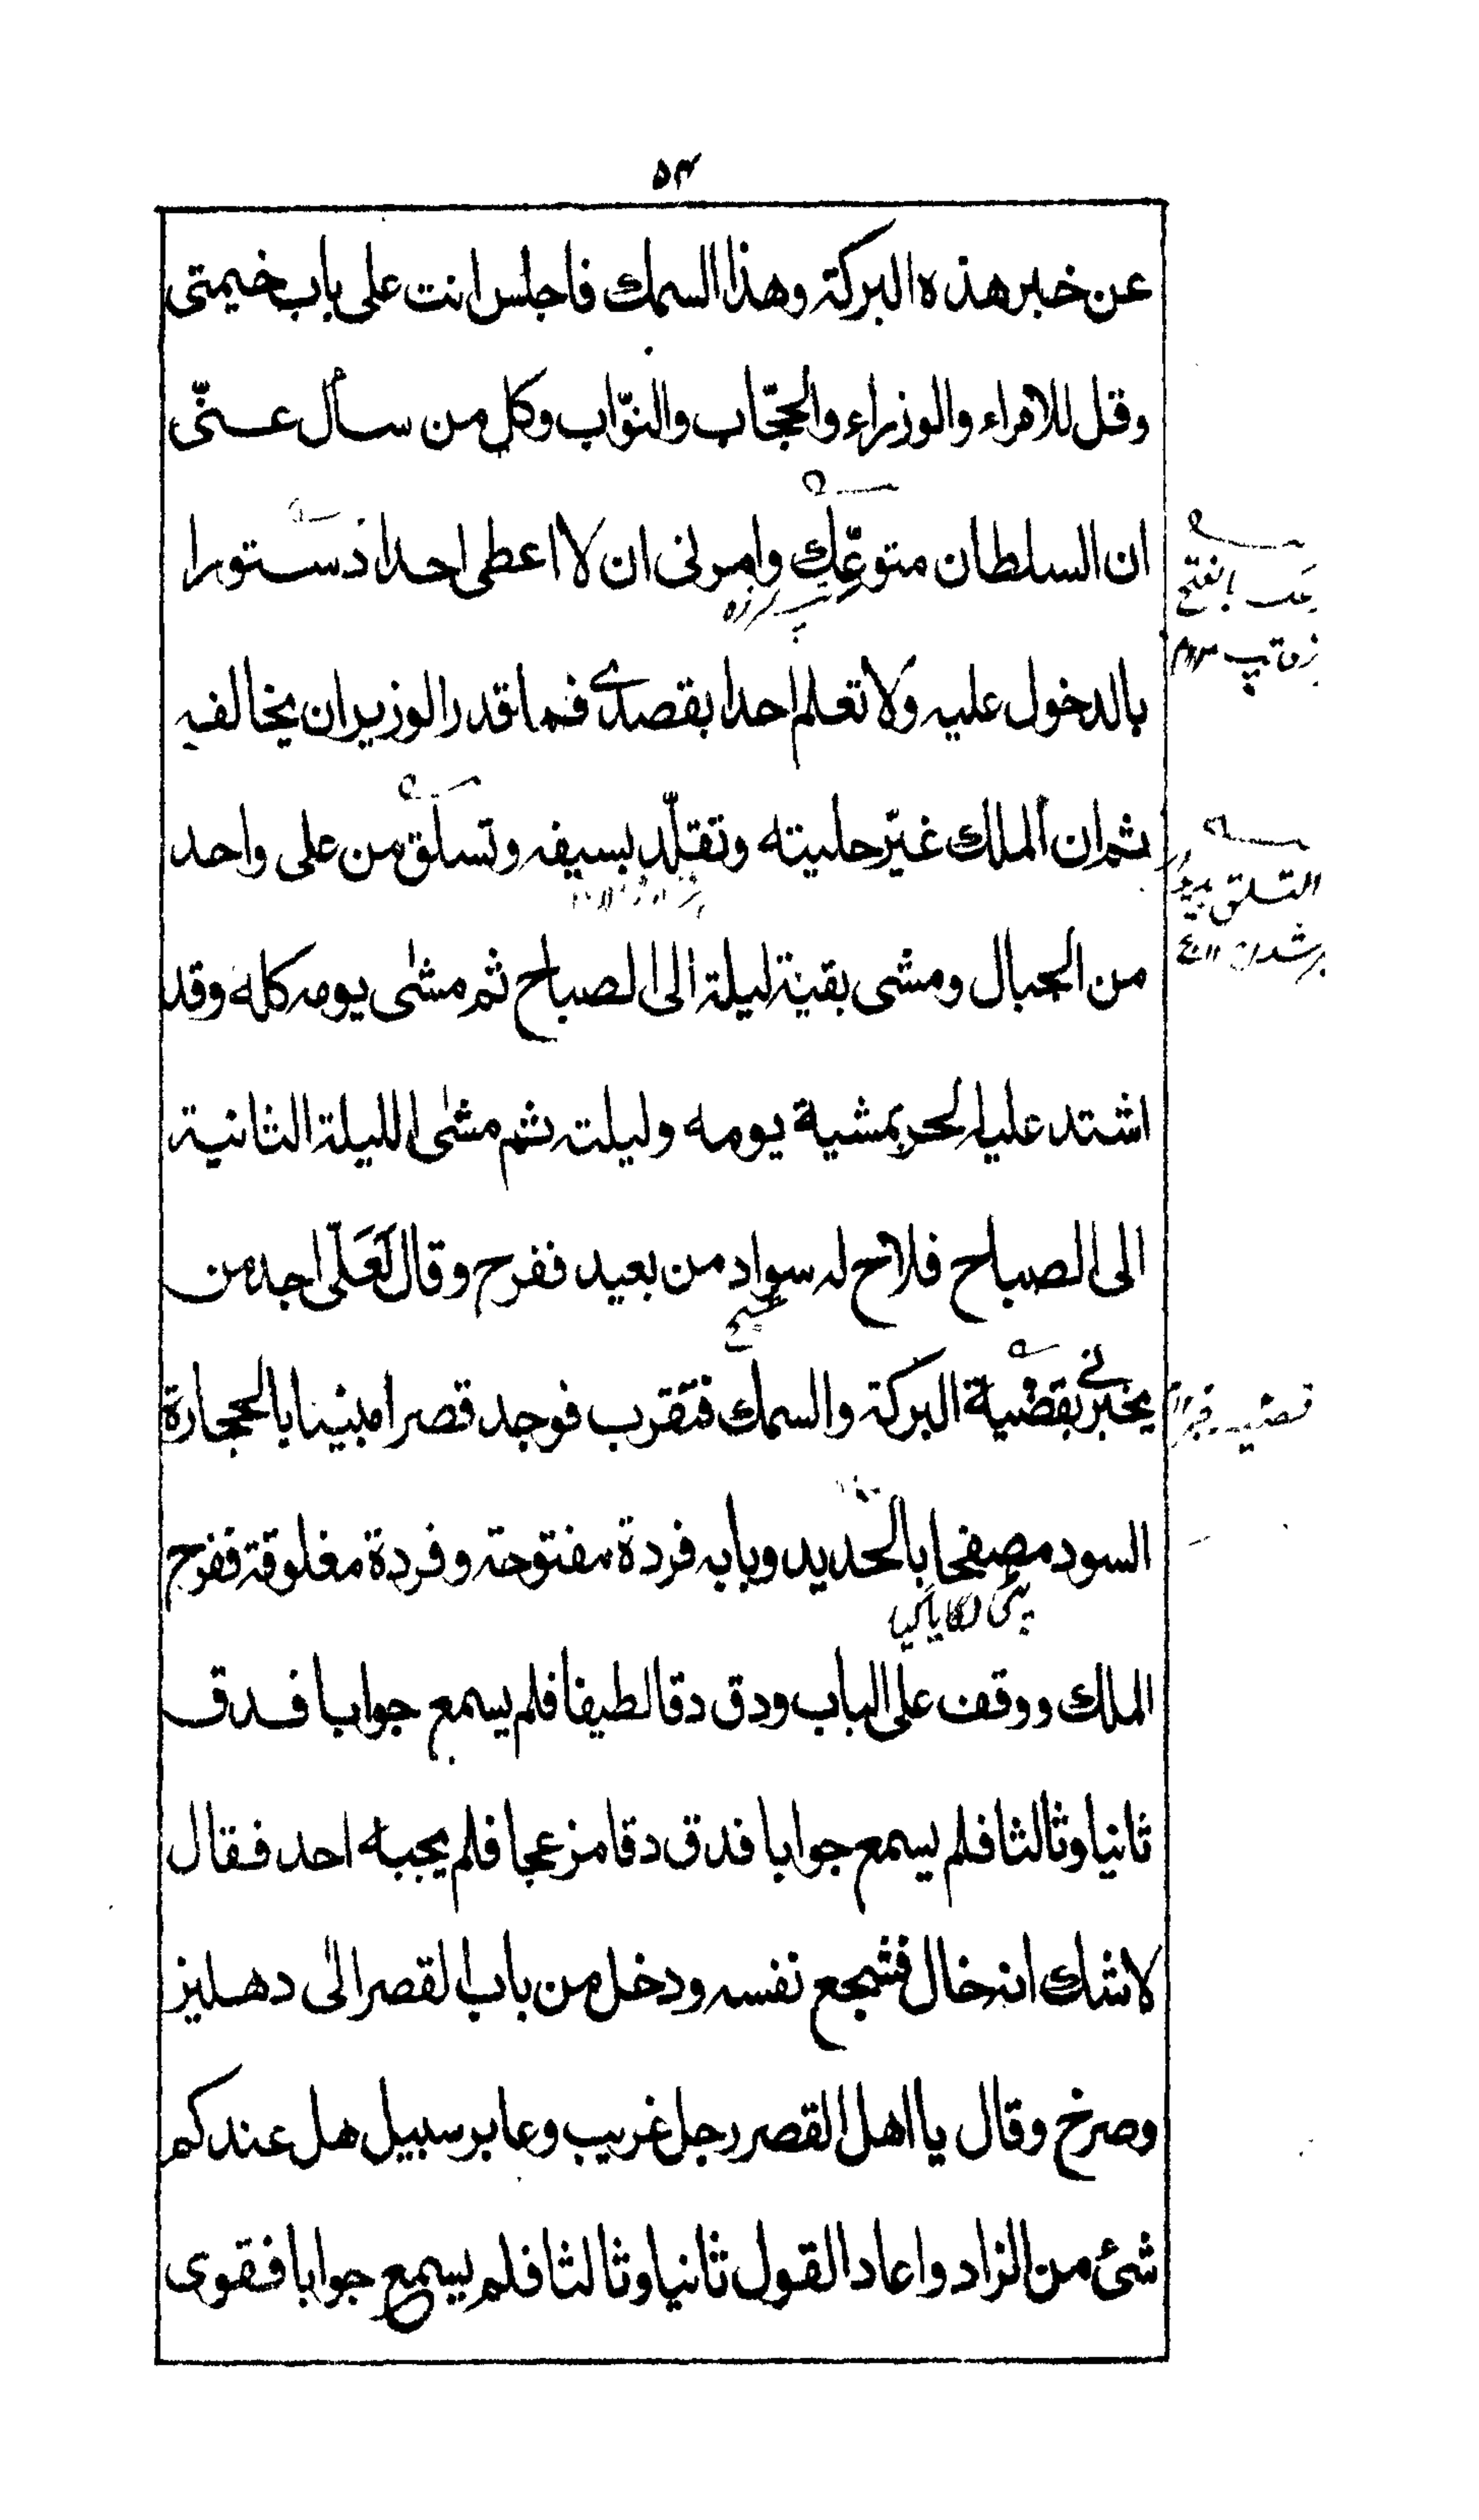 ۵۴
عن خبر هذه البركة وهذا السمك فاجلس انت على باب خيمتى
وقل للامراء والوزراء والحجّاب والنوّاب وكل من سأل عنّى
ان السلطان متوعّك وامرنى ان لا اعطى احدا دستورا
بالدخول عليه ولا تعلم احدا بقصدى فما قدر الوزير ان يخالفه
ثم ان الملك غيّر حليته وتقلّد بسيفه وتسلّق من على واحد
من الجبال ومشى بقية ليلة الى الصباح ثم مشى يومه كله وقد
اشتد عليه الحر بمشية يومه وليلته ثم مشى الليلة الثانية
الى الصباح فلاح له سواد من بعيد ففرح وقال لَعَلّى اجد من
يخبرنى بقضية البركة والسمك فتقرب فوجد قصرا مبينا بالحجارة
السود مصفحا بالحديد وبابه فردة مفتوحة وفردة مغلوقة ففرح
الملك ووقف على الباب ودق دقا لطيفا فلم يسمع جوابا فدق
ثانيا وثالثا فلم يسمع جوابا فدق دقا مزعجا فلم يجبه احد فقال
لاشك انه خال فشجع نفسه ودخل من باب القصر الى دهليز
وصرخ وقال يا اهل القصر رجل غريب وعابر سبيل هل عندكم
شئ من الزاد واعاد القول ثانيا وثالثا فلم يسمع جوابا فقوى